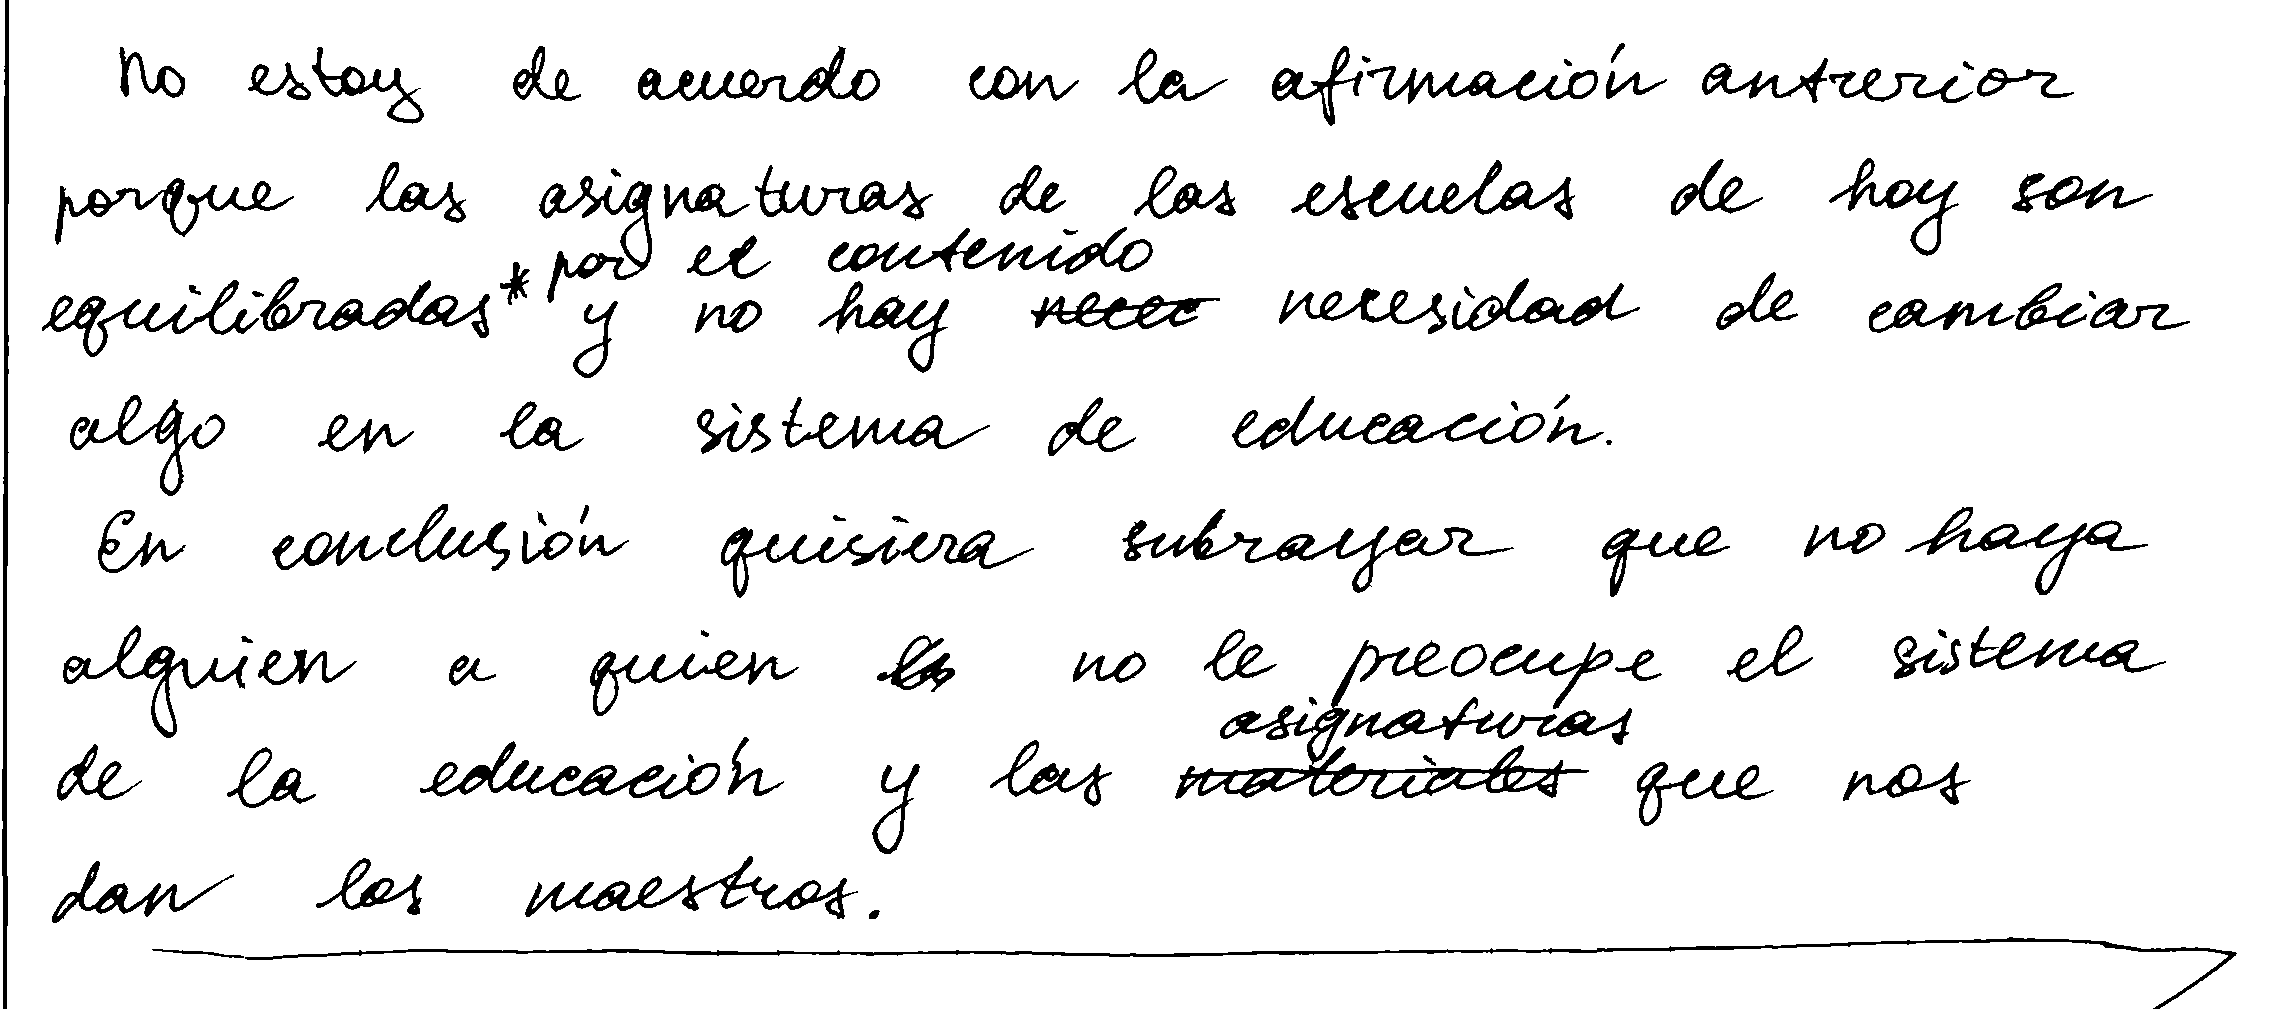 No estoy de acuerdo con la afirmación antrerior
porque las asignaturas de las escuelas de hoy son
equilibradas* por el contenido y no hay necesidad de cambiar
algo en la sistema de educación.
En conclusión quisiera subrayar que no haya
alguien a quien no le preocupe el sistema
de la educación y las asignaturas que nos
dan los maestros.